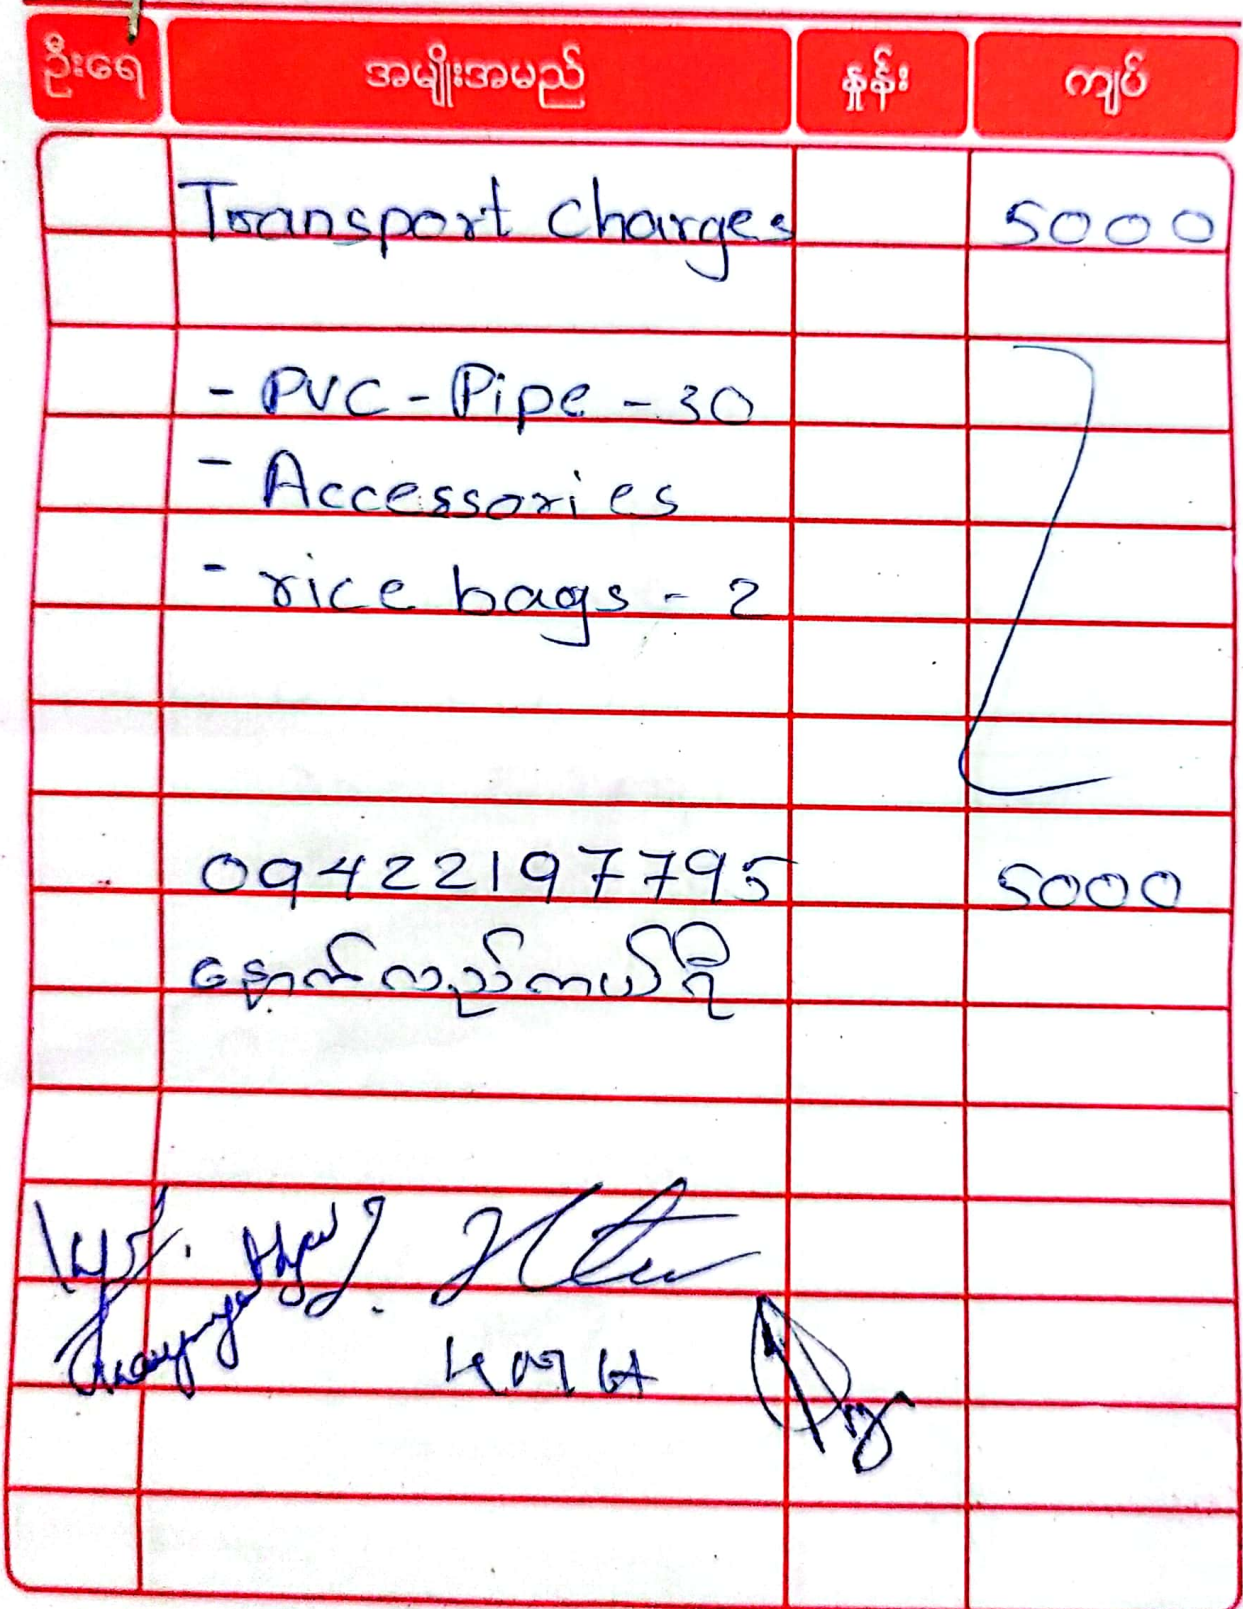 ဦးရေ အမျိုးအမည် နှုန်း ကျပ်
Transport Charges 5000
- PVC - Pipe - 30
- Accessories
- rice bags - 2
09422197795 5000
နောက်လည်ကယ်ရီ